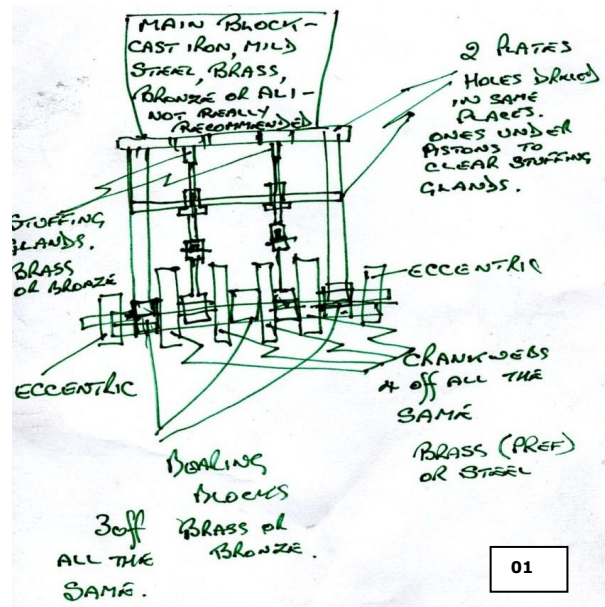 MAIN BLOCK -
CAST IRON, MILD
STEEL, BRASS,
BRONZE OR ALI -
NOT REALLY
RECOMMENDED
2 PLATES
HOLES DRILLED
IN SAME
PLACES.
ONES UNDER
PISTONS TO
CLEAR STUFFING
GLANDS.
STUFFING
GLANDS.
BRASS
OR BRONZE
ECCENTRIC
ECCENTRIC
CRANKWEBS
4 off ALL THE
SAME
BRASS (PREF)
OR STEEL
BEARING
BLOCKS
3 off BRASS OR
ALL THE BRONZE.
SAME.
01